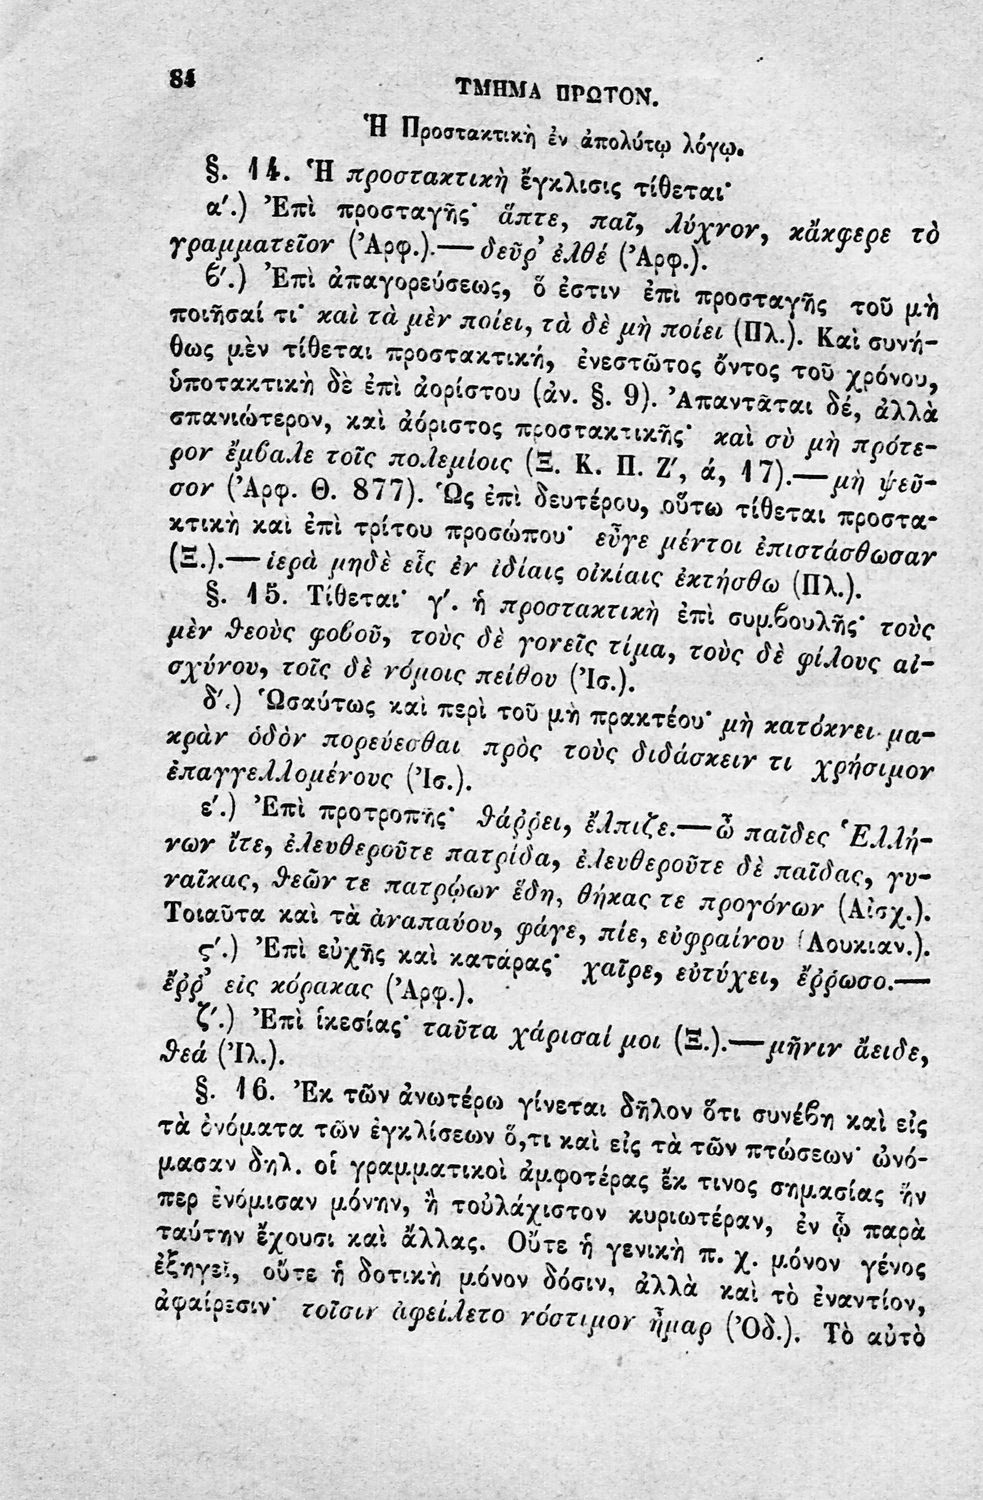 84
ΤΜΗΜΑ ΠΡΩΤΟΝ.
Ἡ Προστακτικὴ ἐν ἀπολύτῳ λόγῳ.
§. 14. Ἡ προστακτικὴ ἔγκλισις τίθεται·
α΄.) Ἐπὶ προσταγῆς· ἅπτε, παῖ, λύχνον, κἄκφερε τὸ
γραμματεῖον (Ἀρφ.).— δεῦρ’ ἐλθέ (Ἀρφ.).
ϐ΄.) Ἐπὶ ἀπαγορεύσεως, ὅ ἐστιν ἐπὶ προσταγῆς τοῦ μὴ
ποιῆσαί τι· καὶ τὰ μὲν ποίει, τὰ δὲ μὴ ποίει (Πλ.). Καὶ συνή-
θως μὲν τίθεται προστακτική, ἐνεστῶτος ὄντος τοῦ χρόνου,
ὑποτακτικὴ δὲ ἐπὶ ἀορίστου (ἀν. §. 9). Ἀπαντᾶται δέ, ἀλλὰ
σπανιώτερον, καὶ ἀόριστος προστακτικῆς· καὶ σὺ μὴ πρότε-
ρον ἔμϐαλε τοῖς πολεμίοις (Ξ. Κ. Π. Ζ΄, ά, 17).— μὴ ψεῦ-
σον (Ἀρφ. Θ. 877). Ὡς ἐπὶ δευτέρου, οὕτω τίθεται προστα-
κτικὴ καὶ ἐπὶ τρίτου προσώπου· εὖγε μέντοι ἐπιστάσθωσαν
(Ξ.).— ἱερὰ μηδὲ εἷς ἐν ἰδίαις οἰκίαις ἐκτήσθω (Πλ.).
§. 15. Τίθεται· γ΄. ἡ προστακτικὴ ἐπὶ συμϐουλῆς· τοὺς
μὲν θεοὺς φοϐοῦ, τοὺς δὲ γονεῖς τίμα, τοὺς δὲ φίλους αἰ-
σχύνου, τοῖς δὲ νόμοις πείθου (Ἰσ.).
δ΄.) Ὡσαύτως καὶ περὶ τοῦ μὴ πρακτέου· μὴ κατόκνει μα-
κρὰν ὁδὸν πορεύεσθαι πρὸς τοὺς διδάσκειν τι χρήσιμον
ἐπαγγελλομένους (Ἰσ.).
ε΄.) Ἐπὶ προτροπῆς· θάῤῥει, ἔλπιζε.— ὦ παῖδες Ἑλλή-
νων ἴτε, ἐλευθεροῦτε πατρίδα, ἐλευθεροῦτε δὲ παῖδας, γυ-
ναῖκας, θεῶν τε πατρῴων ἕδη, θήκας τε προγόνων (Αἰσχ.).
Τοιαῦτα καὶ τὰ ἀναπαύου, φάγε, πίε, εὐφραίνου (Λουκιαν.).
ς΄.) Ἐπὶ εὐχῆς καὶ κατάρας· χαῖρε, εὐτύχει, ἔῤῥωσο.—
ἔῤῥ’ εἰς κόρακας (Ἀρφ.).
ζ΄.) Ἐπὶ ἱκεσίας· ταῦτα χάρισαί μοι (Ξ.).— μῆνιν ἄειδε,
θεά (Ἰλ.).
§. 16. Ἐκ τῶν ἀνωτέρω γίνεται δῆλον ὅτι συνέϐη καὶ εἰς
τὰ ὀνόματα τῶν ἐγκλίσεων ὅ,τι καὶ εἰς τὰ τῶν πτώσεων· ὠνό-
μασαν δηλ. οἱ γραμματικοὶ ἀμφοτέρας ἔκ τινος σημασίας ἥν
περ ἐνόμισαν μόνην, ἢ τοὐλάχιστον κυριωτέραν, ἐν ᾧ παρὰ
ταύτην ἔχουσι καὶ ἄλλας. Οὔτε ἡ γενικὴ π. χ. μόνον γένος
ἐξηγεῖ, οὔτε ἡ δοτικὴ μόνον δόσιν, ἀλλὰ καὶ τὸ ἐναντίον,
ἀφαίρεσιν· τοῖσιν ἀφείλετο νόστιμον ἦμαρ (Ὀδ.). Τὸ αὐτὸ